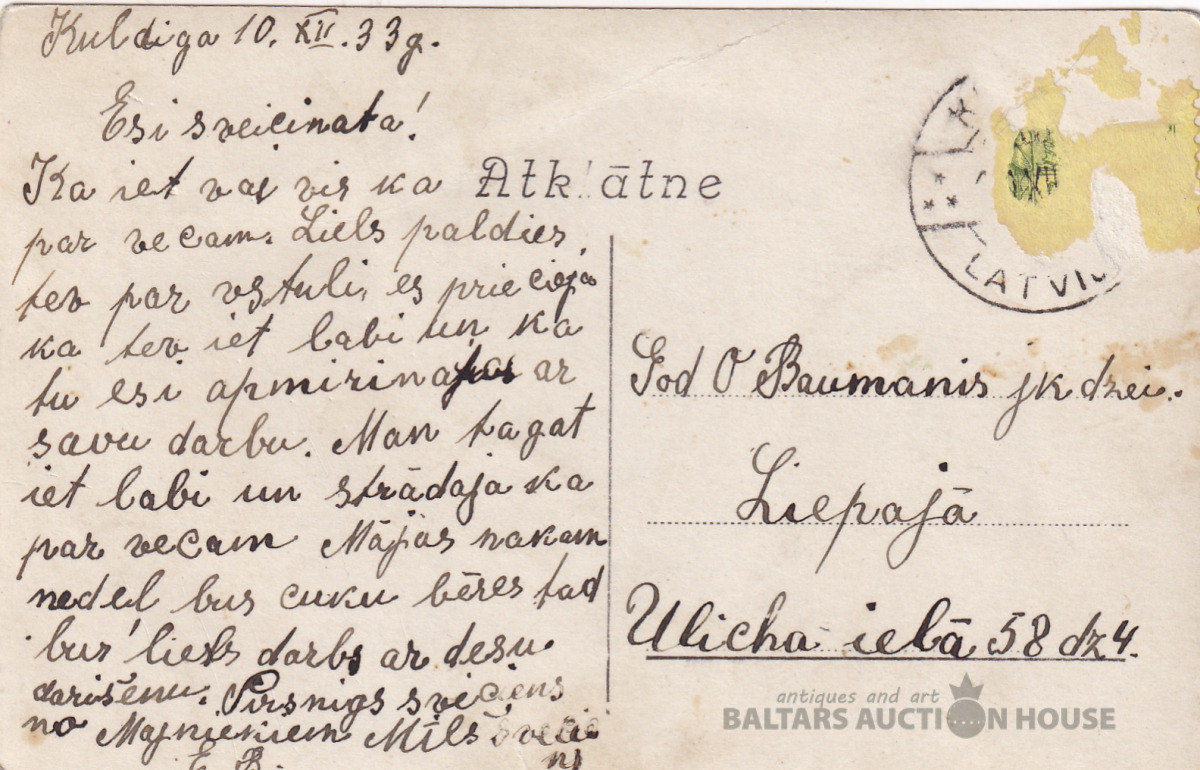 Kuldiga 10. XII. 33g.
Esi sveicinata!
Ka iet vai vis ka
par vecam. Liels paldies,
tev par vstuli, es priecieja
ka tev iet labi un ka
tu esi ar
savu darbu. Man tagat
iet labi un strādaja ka
par vecam Mājās nakam
nedēl bus cuku bēres tad
bus liels darbs ar desu
darišenu. Sirsnigs sveiciens
no Majniekiem Mīlš
E. B.
Atklātne
LATVIJ
God O Baumanis jk dzei.
Liepajā
Ulicha ielā 58 dz 4.
antiques and art
BALTARS AUCTION HOUSE